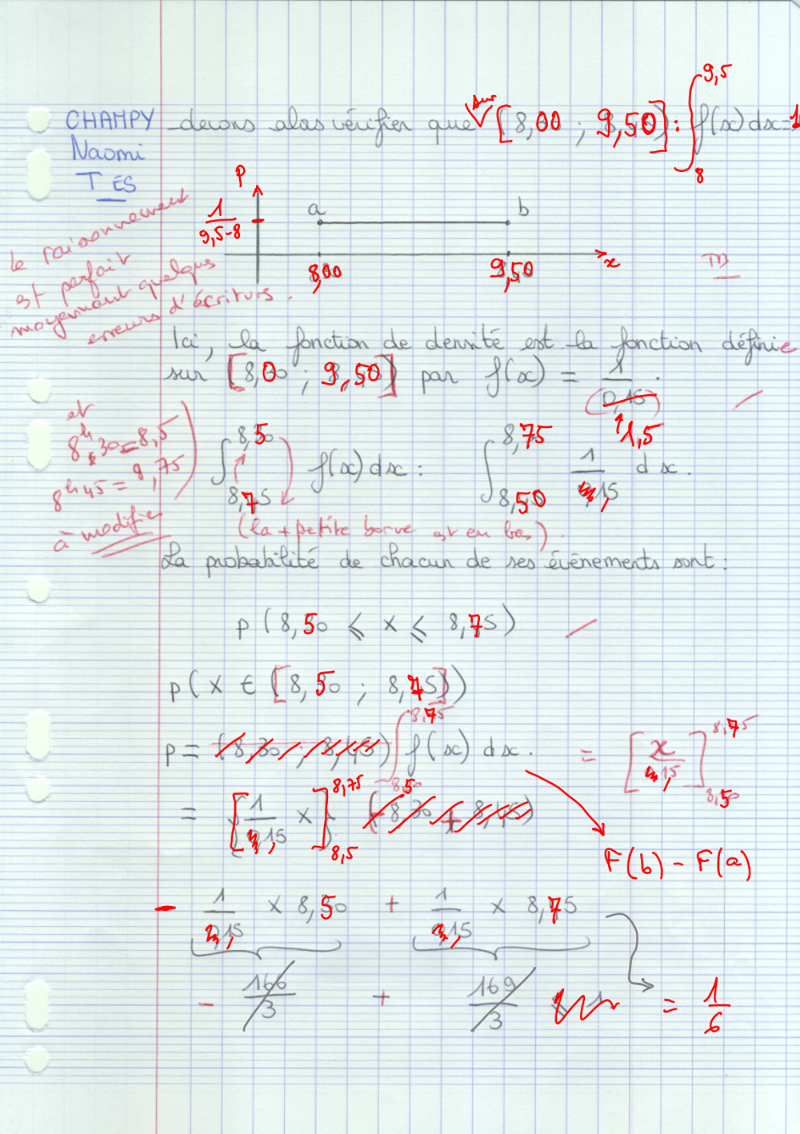 CHAMPY devons alors vérifier que sur [8,00 ; 9,50] : ∫ 9,5 8 f(x) dx = 1
Naomi
T ES
p
1/(9,5-8) a b
8,00 9,50 x
le raisonnement
est parfait
moyennant quelques
erreurs d'écriture.
TB
Ici, la fonction de densité est la fonction définie
sur [8,00 ; 9,50] par f(x) = 1/(0,15).
↑1,5
et
8h30 = 8,5
8h45 = 8,75
à modifier
∫ 8,50 8,75 f(x) dx : ∫ 8,75 8,50 1/1,5 dx.
(la + petite borne est en bas).
La probabilité de chacun de ses évènements sont :
p (8,50 ⩽ x ⩽ 8,75)
p(X ∈ [8,50 ; 8,75])
p = (8,30 ; 8,45) ∫ 8,75 8,50 f(x) dx. = [x/1,5] 8,75 8,50
= [1/1,5 x] 8,75 8,5 (8,30 + 8,45)
F(b) - F(a)
- 1/1,5 × 8,50 + 1/1,5 × 8,75
- 166/3 + 169/3 = 1/6